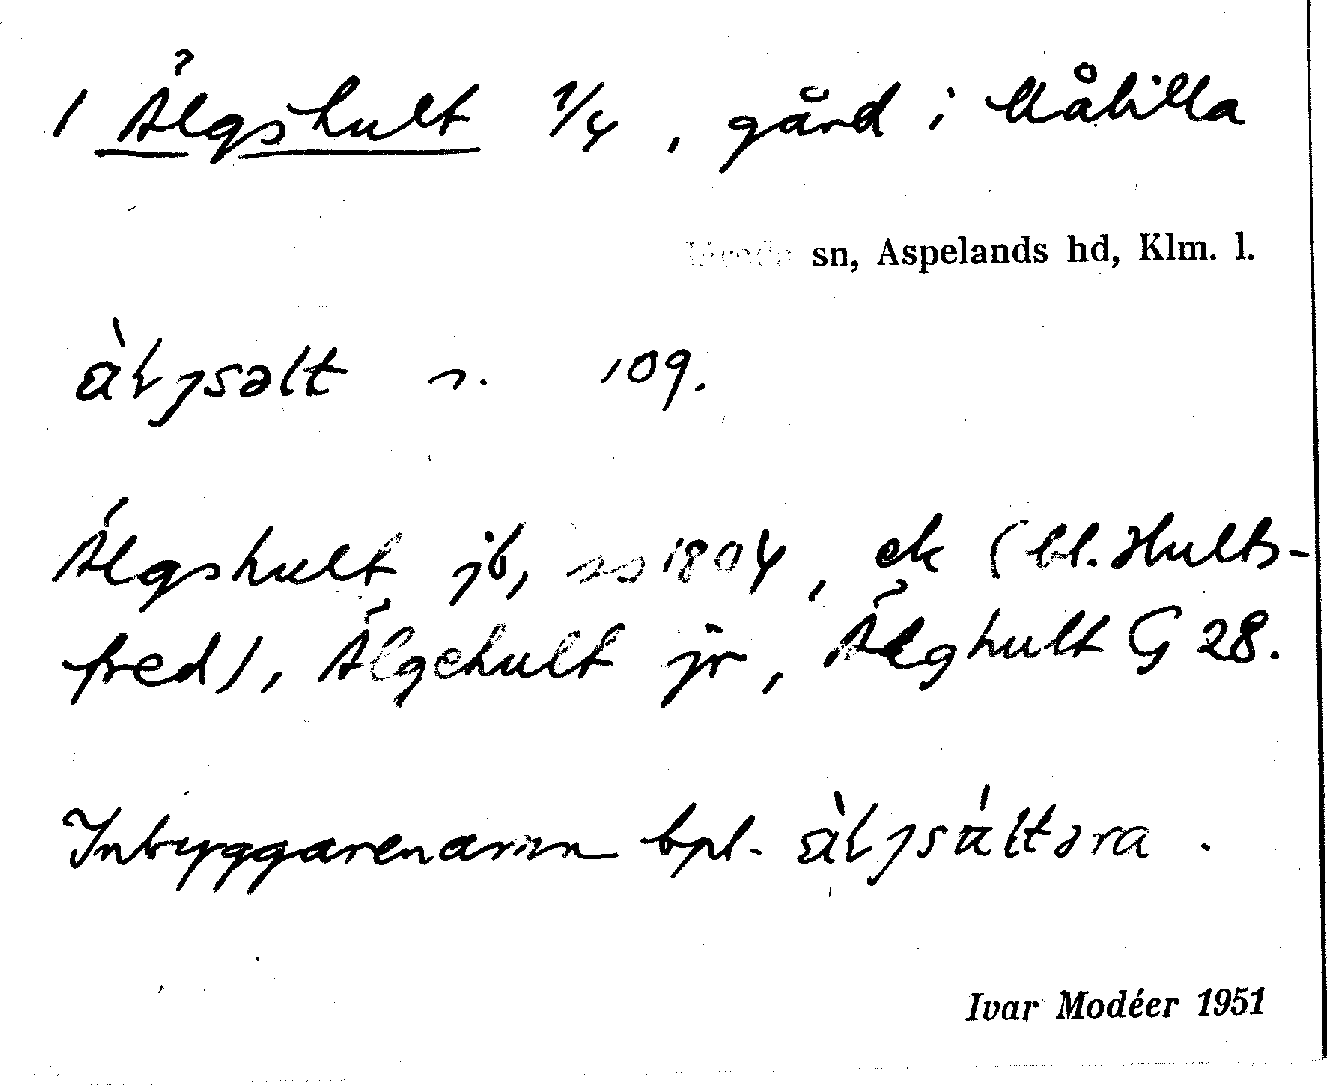 1 Älgshult 1/4, gård i Målilla
sn, Aspelands hd, Klm. l.
109.
Älgshult jb, 1804, ek (bl. Hults-
fred), Älgehult jr, Älghult G 28.
Inbyggarenamn bpl.
Ivar Modéer 1951